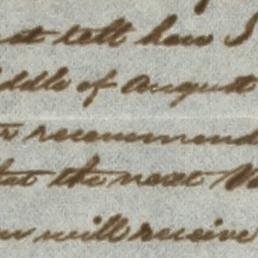 tell how I
of August
recommend
that the next
will receive